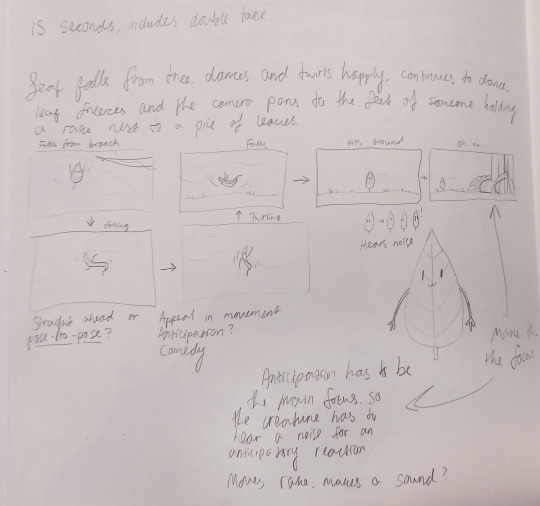 15 seconds, includes double take.
Leaf falls from tree, dances and twirls happily, continues to dance,
leaf freezes and the camera pans to the feet of someone holding
a rake next to a pile of leaves.
Falls from branch
Falls
Hits ground
Oh no
Twirling
Hears noise
Straight ahead or
pose-to-pose?
Appeal in movement
Anticipation?
Comedy
Make
the focus
Anticipation has to be
the main focus, so
the creature has to
hear a noise for an
anticipatory reaction
Moves, rake, makes a sound?